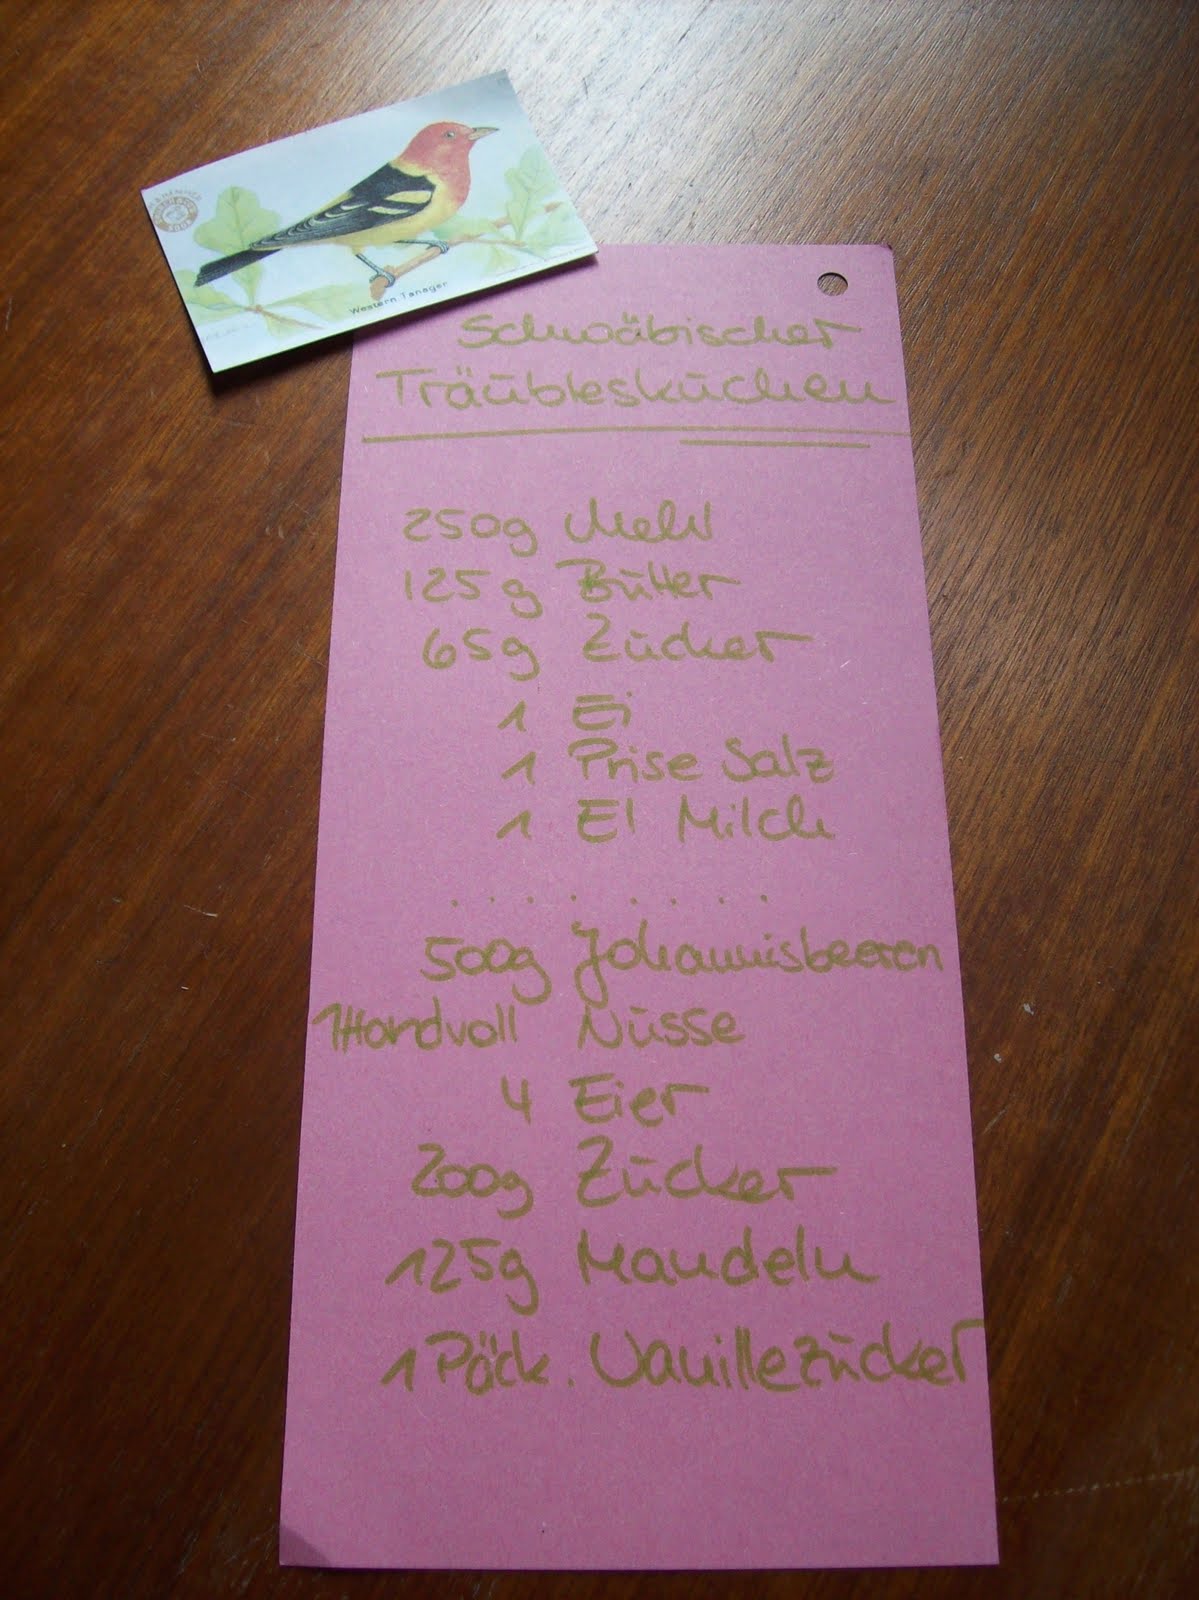 Western Tanager
Schwäbischer
Träubleskuchen
250g Mehl
125g Butter
65g Zucker
1 Ei
1 Prise Salz
1 El Milch
.........
500g Johannisbeeren
1 Handvoll Nüsse
4 Eier
200g Zucker
125g Mandeln
1 Päck. Vanillezucker